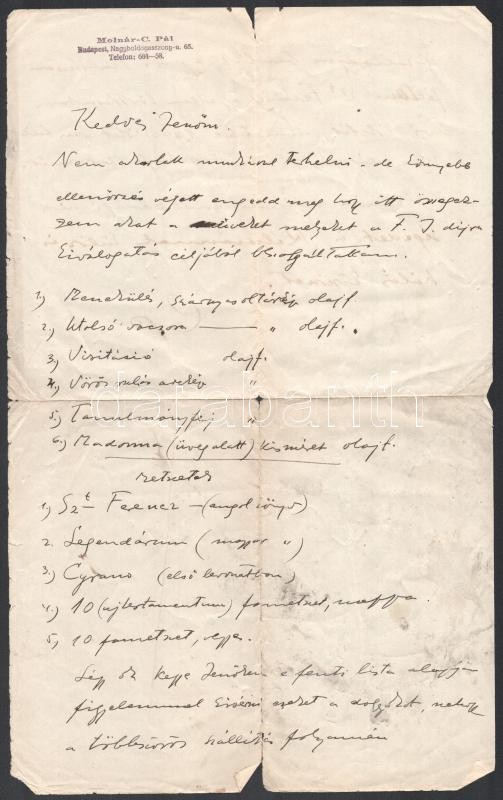 Molnár-C. Pál
Budapest, Nagyboldogasszony-u. 65.
Telefon: 681—58.
Kedves Jenőm.
Nem akarlak munkával terhelni – de könnyebb
ellenőrzés végett engedd meg hogy itt összegez-
zem azokat a műveket melyeket a F. J. díjra
kiválogatás céljából beszolgáltattam.
1.) Menekülés, szárnyasoltárkép olajf
2.) Utolsó vacsora — " olajf.
3.) Visitáció olajf.
4.) Vörös arckép "
5.) Tanulmányfej "
6.) Madonna (üvegalatt) kisméret olajf.
1.) Szt Ferenc – (angol könyv)
2. Legendárium (magyar ")
3.) Cyrano (első
4.) 10 (ujtestamentum) fametszet, mappa.
5.) 10 fametszet,
Légy oly Jenőkém a fenti lista alapján
figyelemmel kisérni ezeket a dolgokat, nehogy
a többszörös szállítás folyamán
databanth